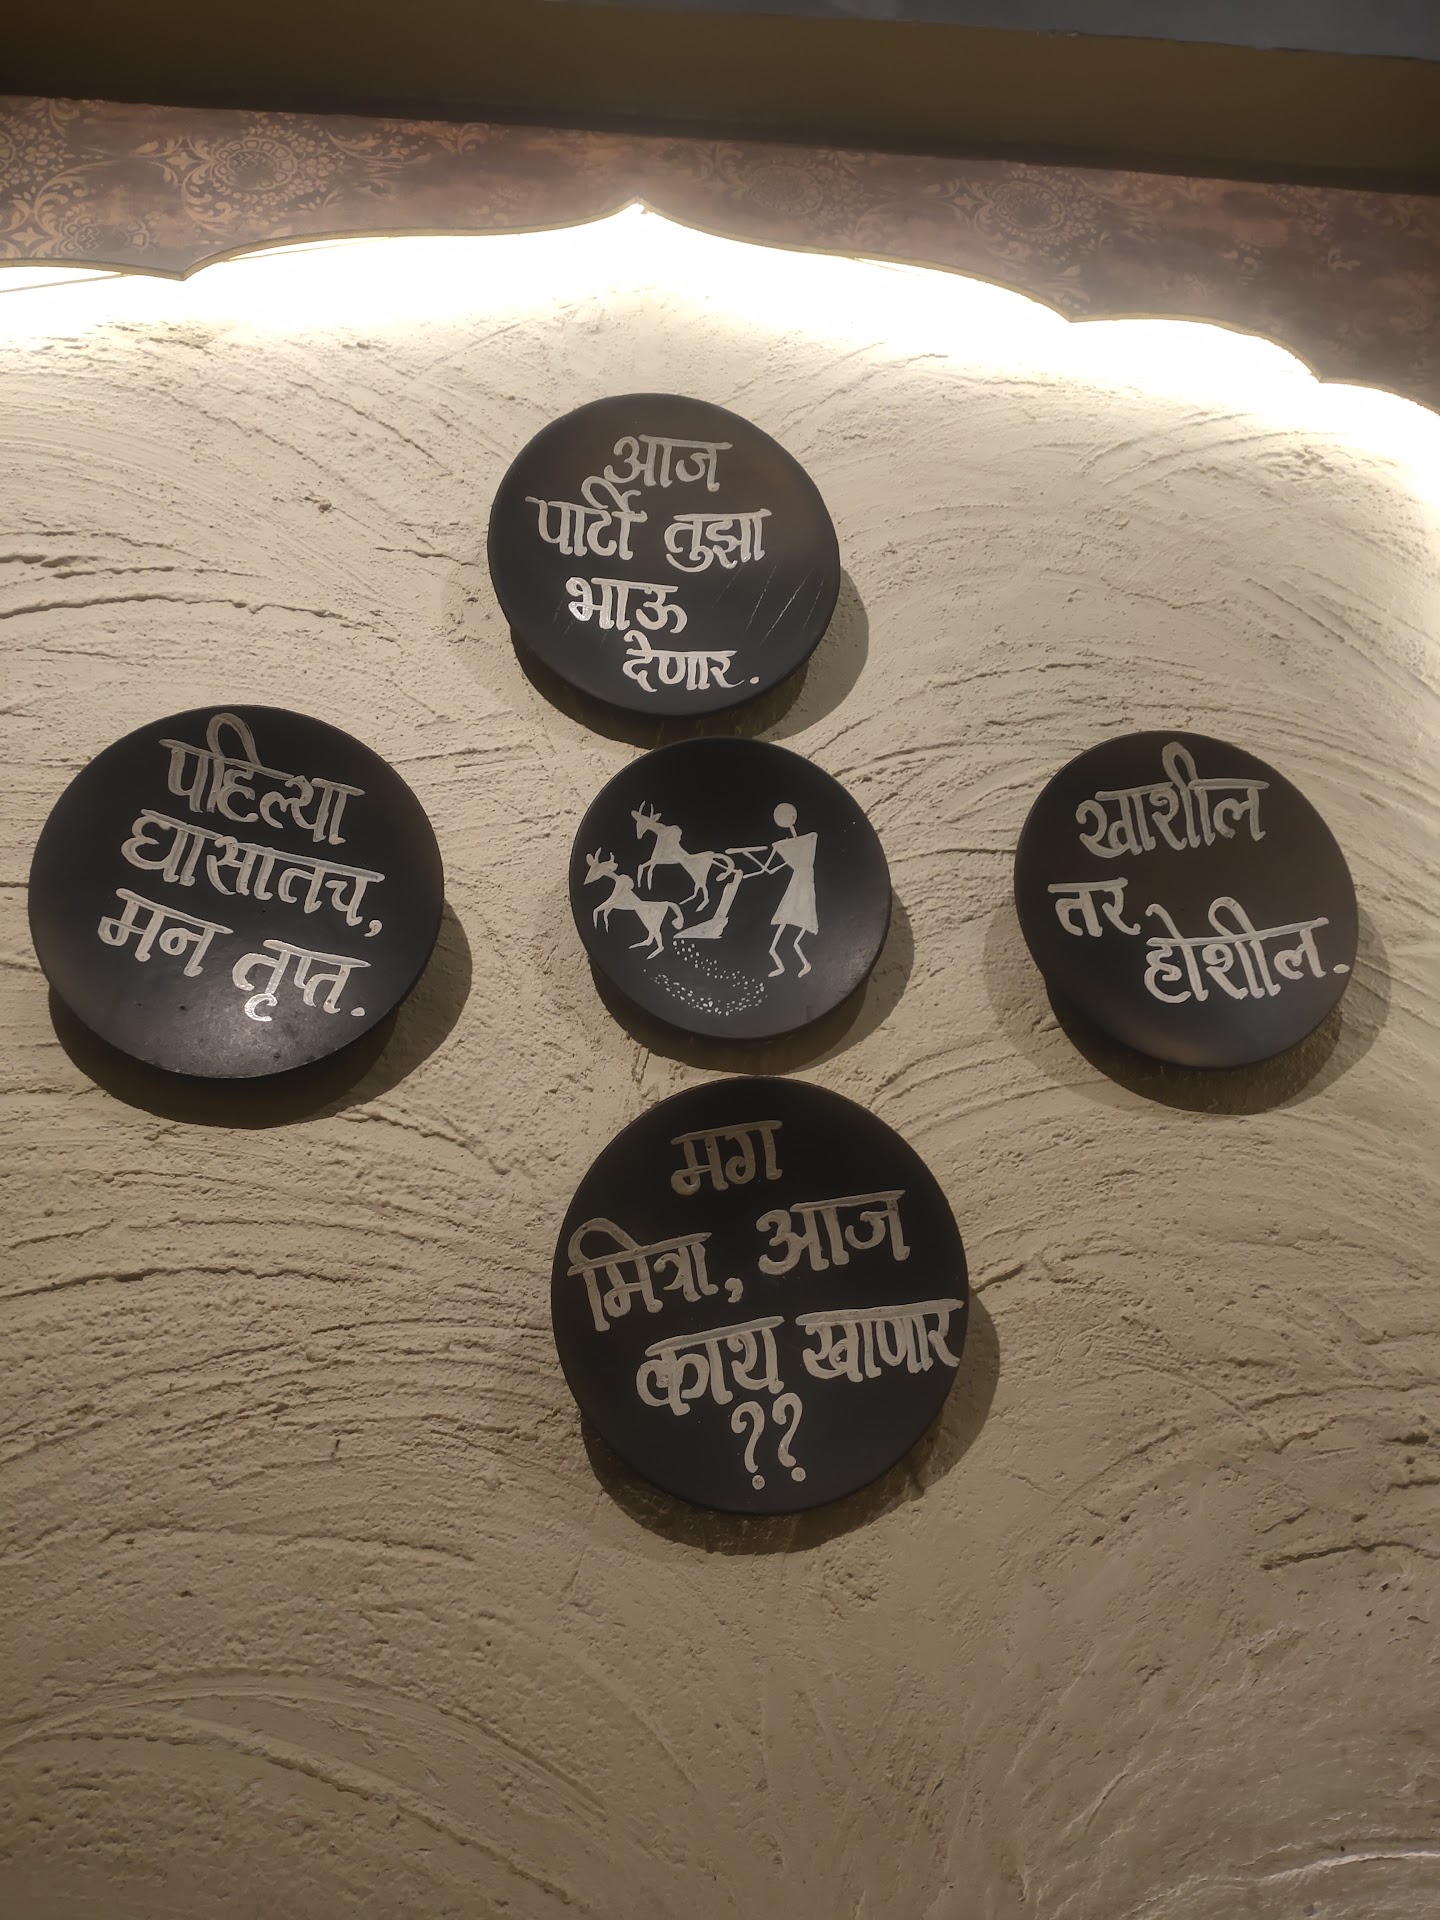 आज
पार्टी तुझा
भाऊ
देणार.
पहिल्या
घासातच,
मन तृप्त.
खाशील
तर
होशील.
मग
मित्रा, आज
काय खाणार
??